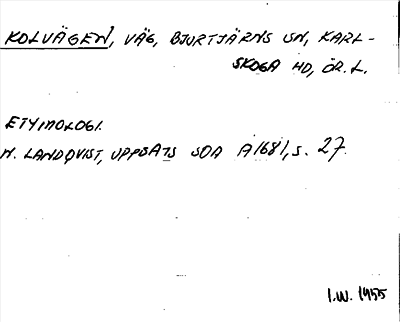 KOLVÄGEN, VÄG, BJURTJÄRNS SN, KARL-
SKOGA HD, ÖR. L.
ETYMOLOGI.
H. LANDQVIST, UPPSATS SOA A1681, S. 27.
I.W. 1955